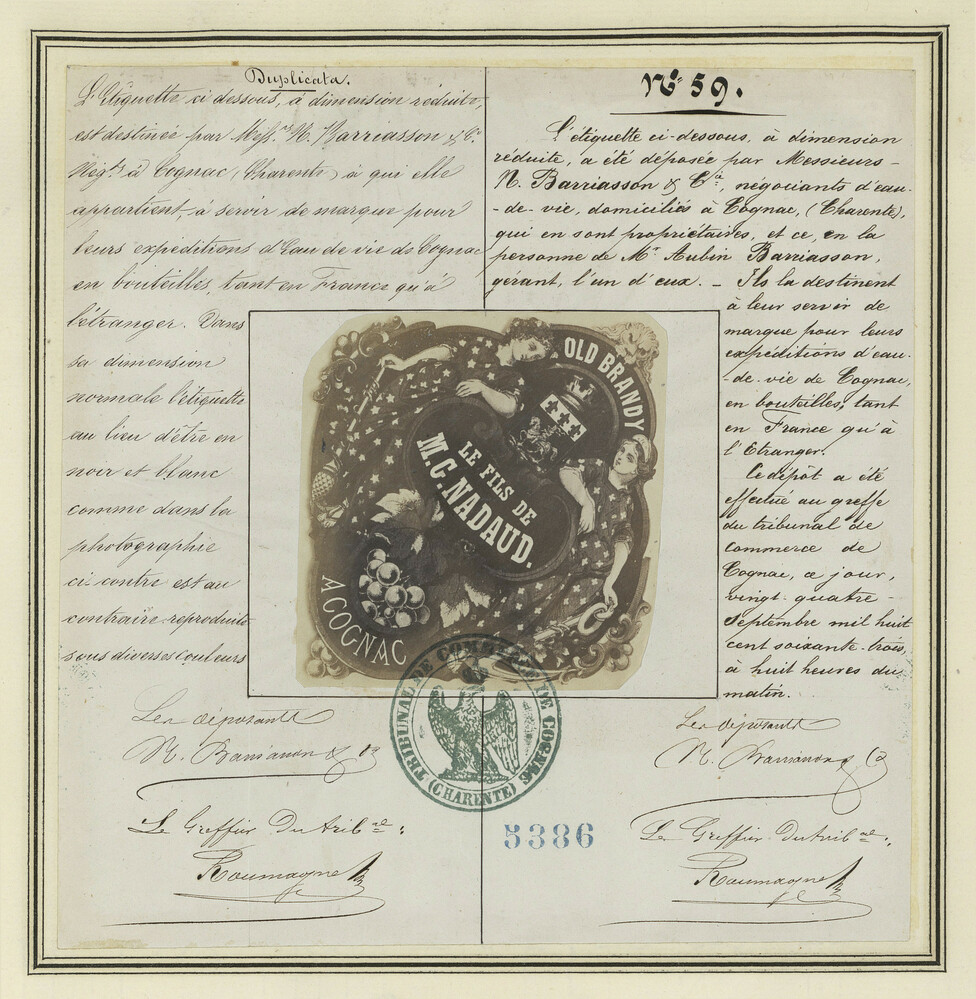 Duplicata.
L'Etiquette ci dessous, à dimension réduite,
est destinée par Mess.rs N. Barriasson & Cie
Négts à Cognac (Charente) à qui elle
appartient à servir de marque pour
leurs expéditions d'Eau de vie de Cognac
en bouteilles, tant en France qu'à
l'étranger. Dans
sa dimension
normale l'étiquette
au lieu d'être en
noir et blanc
comme dans la
photographie
ci contre est au
contraire reproduite
sous diverses couleurs
Les déposants
N. Barriasson & Cie
Le Greffier Du tribal :
Roumagne
N° 59.
L'étiquette ci-dessous, à dimension
réduite, a été déposée par Messieurs
N. Barriasson & Cie, négociants d'eau-
-de-vie, domiciliés à Cognac, (Charente),
qui en sont propriétaires, et ce, en la
personne de Mr Aubin Barriasson,
gérant, l'un d'eux. - Ils la destinent
à leur servir de
marque pour leurs
expéditions d'eau-
-de-vie de Cognac,
en bouteilles, tant
en France qu'à
l'Etranger.
Ce dépôt a été
effectué au greffe
du tribunal de
commerce de
Cognac, ce jour,
vingt-quatre-
Septembre mil huit
cent soixante-trois,
à huit heures du
matin.
Les déposants
N. Barriasson & Cie
Le Greffier Du trib al :
Roumagne
OLD BRANDY
LE FILS DE
M.C. NADAUD.
A COGNAC
TRIBUNAL DE COMMERCE DE COGNAC
(CHARENTE)
5386